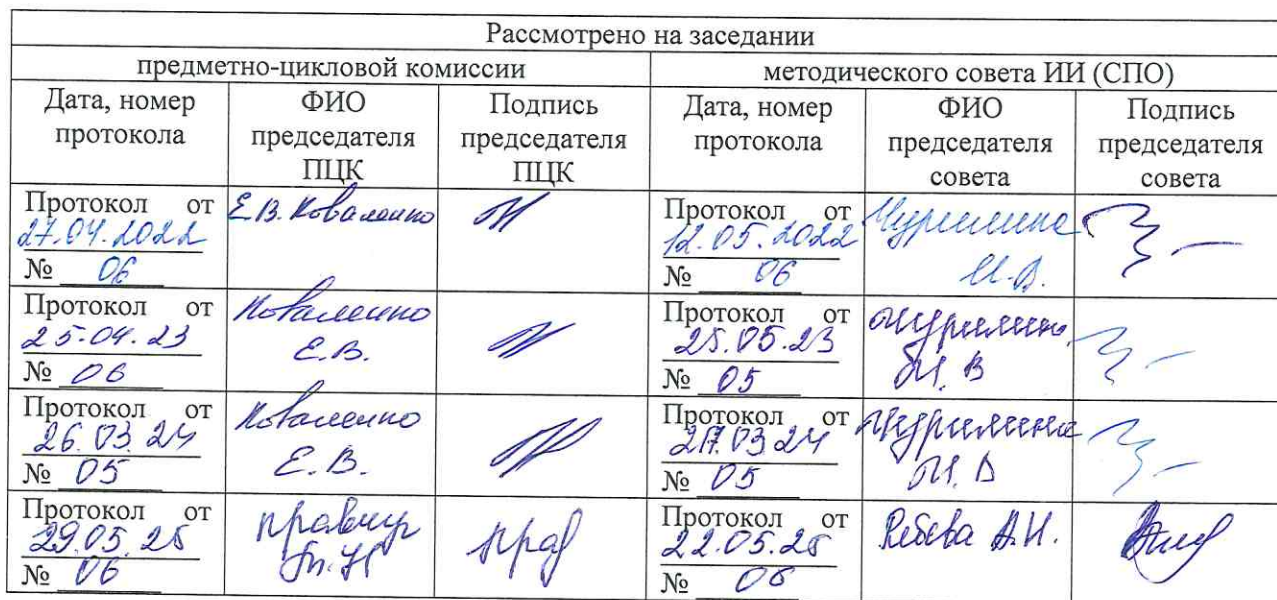 Рассмотрено на заседании
предметно-цикловой комиссии
методического совета ИИ (СПО)
Дата, номер протокола
ФИО председателя ПЦК
Подпись председателя ПЦК
Дата, номер протокола
ФИО председателя совета
Подпись председателя совета
Протокол от
27.04.2022
№ 06
Е.В. Коваленко
Протокол от
12.05.2022
№ 06
Чурилина
И.В.
Протокол от
25.04.23
№ 06
Коваленко
Е.В.
Протокол от
25.05.23
№ 05
Чурилина
И.В
Протокол от
26.03.24
№ 05
Коваленко
Е.В.
Протокол от
27.03.24
№ 05
Чурилина
И.В
Протокол от
29.05.25
№ 06
Протокол от
22.05.25
№ 06
А.И.